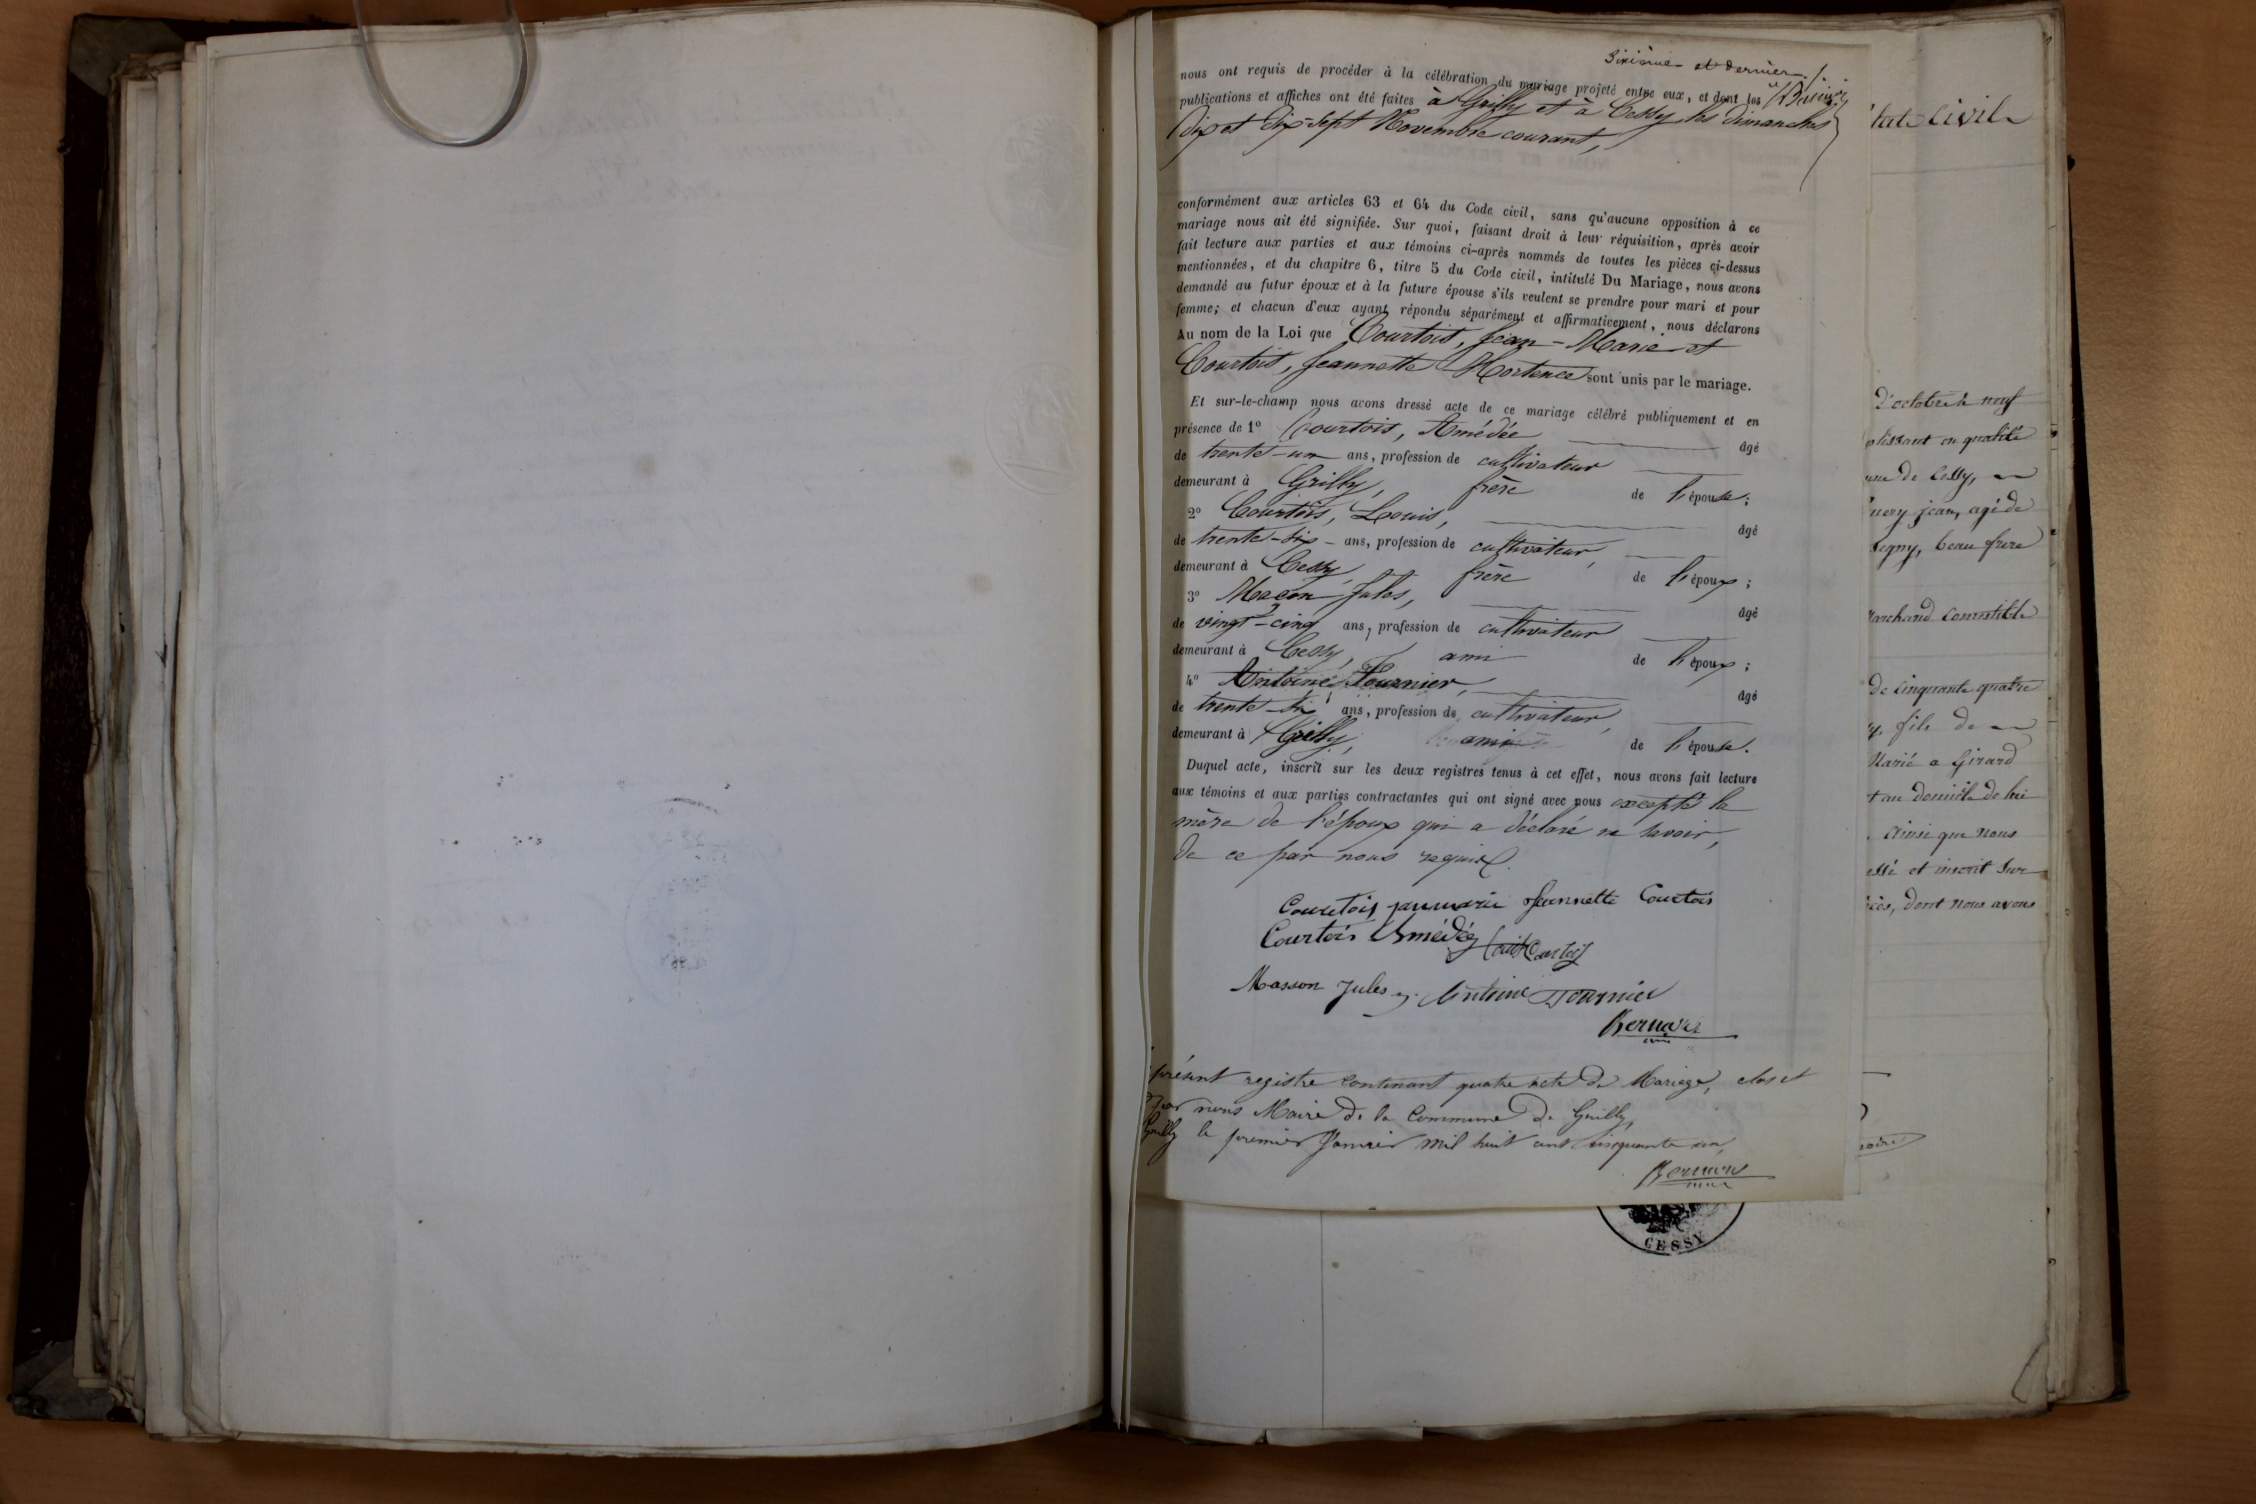 Sixième et dernier
nous ont requis de procéder à la célébration du mariage projeté entre eux, et dont les
publications et affiches ont été faites à Grilly et à Cessy, les dimanches
dix et dix-sept Novembre courant,
conformément aux articles 63 et 64 du Code civil, sans qu'aucune opposition à ce
mariage nous ait été signifiée. Sur quoi, faisant droit à leur réquisition, après avoir
fait lecture aux parties et aux témoins ci-après nommés de toutes les pièces ci-dessus
mentionnées, et du chapitre 6, titre 5 du Code civil, intitulé Du Mariage, nous avons
demandé au futur époux et à la future épouse s'ils veulent se prendre pour mari et pour
femme; et chacun d'eux ayant répondu séparément et affirmativement, nous déclarons
Au nom de la Loi que Courtois, Jean-Marie et
Courtois, Jeannette Hortence sont unis par le mariage.
Et sur-le-champ nous avons dressé acte de ce mariage célébré publiquement et en
présence de 1º Courtois, Amédée âgé
de trente-un ans, profession de cultivateur
demeurant à Grilly, frère de l'épouse;
2º Courtois, Louis, âgé
de trente-six ans, profession de cultivateur,
demeurant à Cessy, frère de l'époux;
3º Macon Jules, âgé
de vingt-cinq ans, profession de cultivateur
demeurant à Cessy, ami de l'époux;
4º Antoine Fournier, âgé
de trente-six ans, profession de cultivateur,
demeurant à Grilly, ami de l'épouse.
Duquel acte, inscrit sur les deux registres tenus à cet effet, nous avons fait lecture
aux témoins et aux parties contractantes qui ont signé avec nous excepté la
mère de l'époux qui a déclaré ne savoir,
de ce par nous requise
Courtois janmarie Jeannette Courtois
Courtois Amédée Louis Courtois
Masson Jules Antoine Fournier
présent registre contenant quatre acte de Mariage, clos et
par nous Maire de la Commune de Grilly,
Grilly le premier Janvier mil huit cent cinquante un,
tat civil
d'octobre à neuf
plissant en qualité
de Cessy,
jean, agé de
segny, beau frere
marchand comestible
de cinquante quatre
fils de
Marié a Girard
au domicile de lui
ainsi que nous
essé et inscrit sur
dont nous avons
CESSY